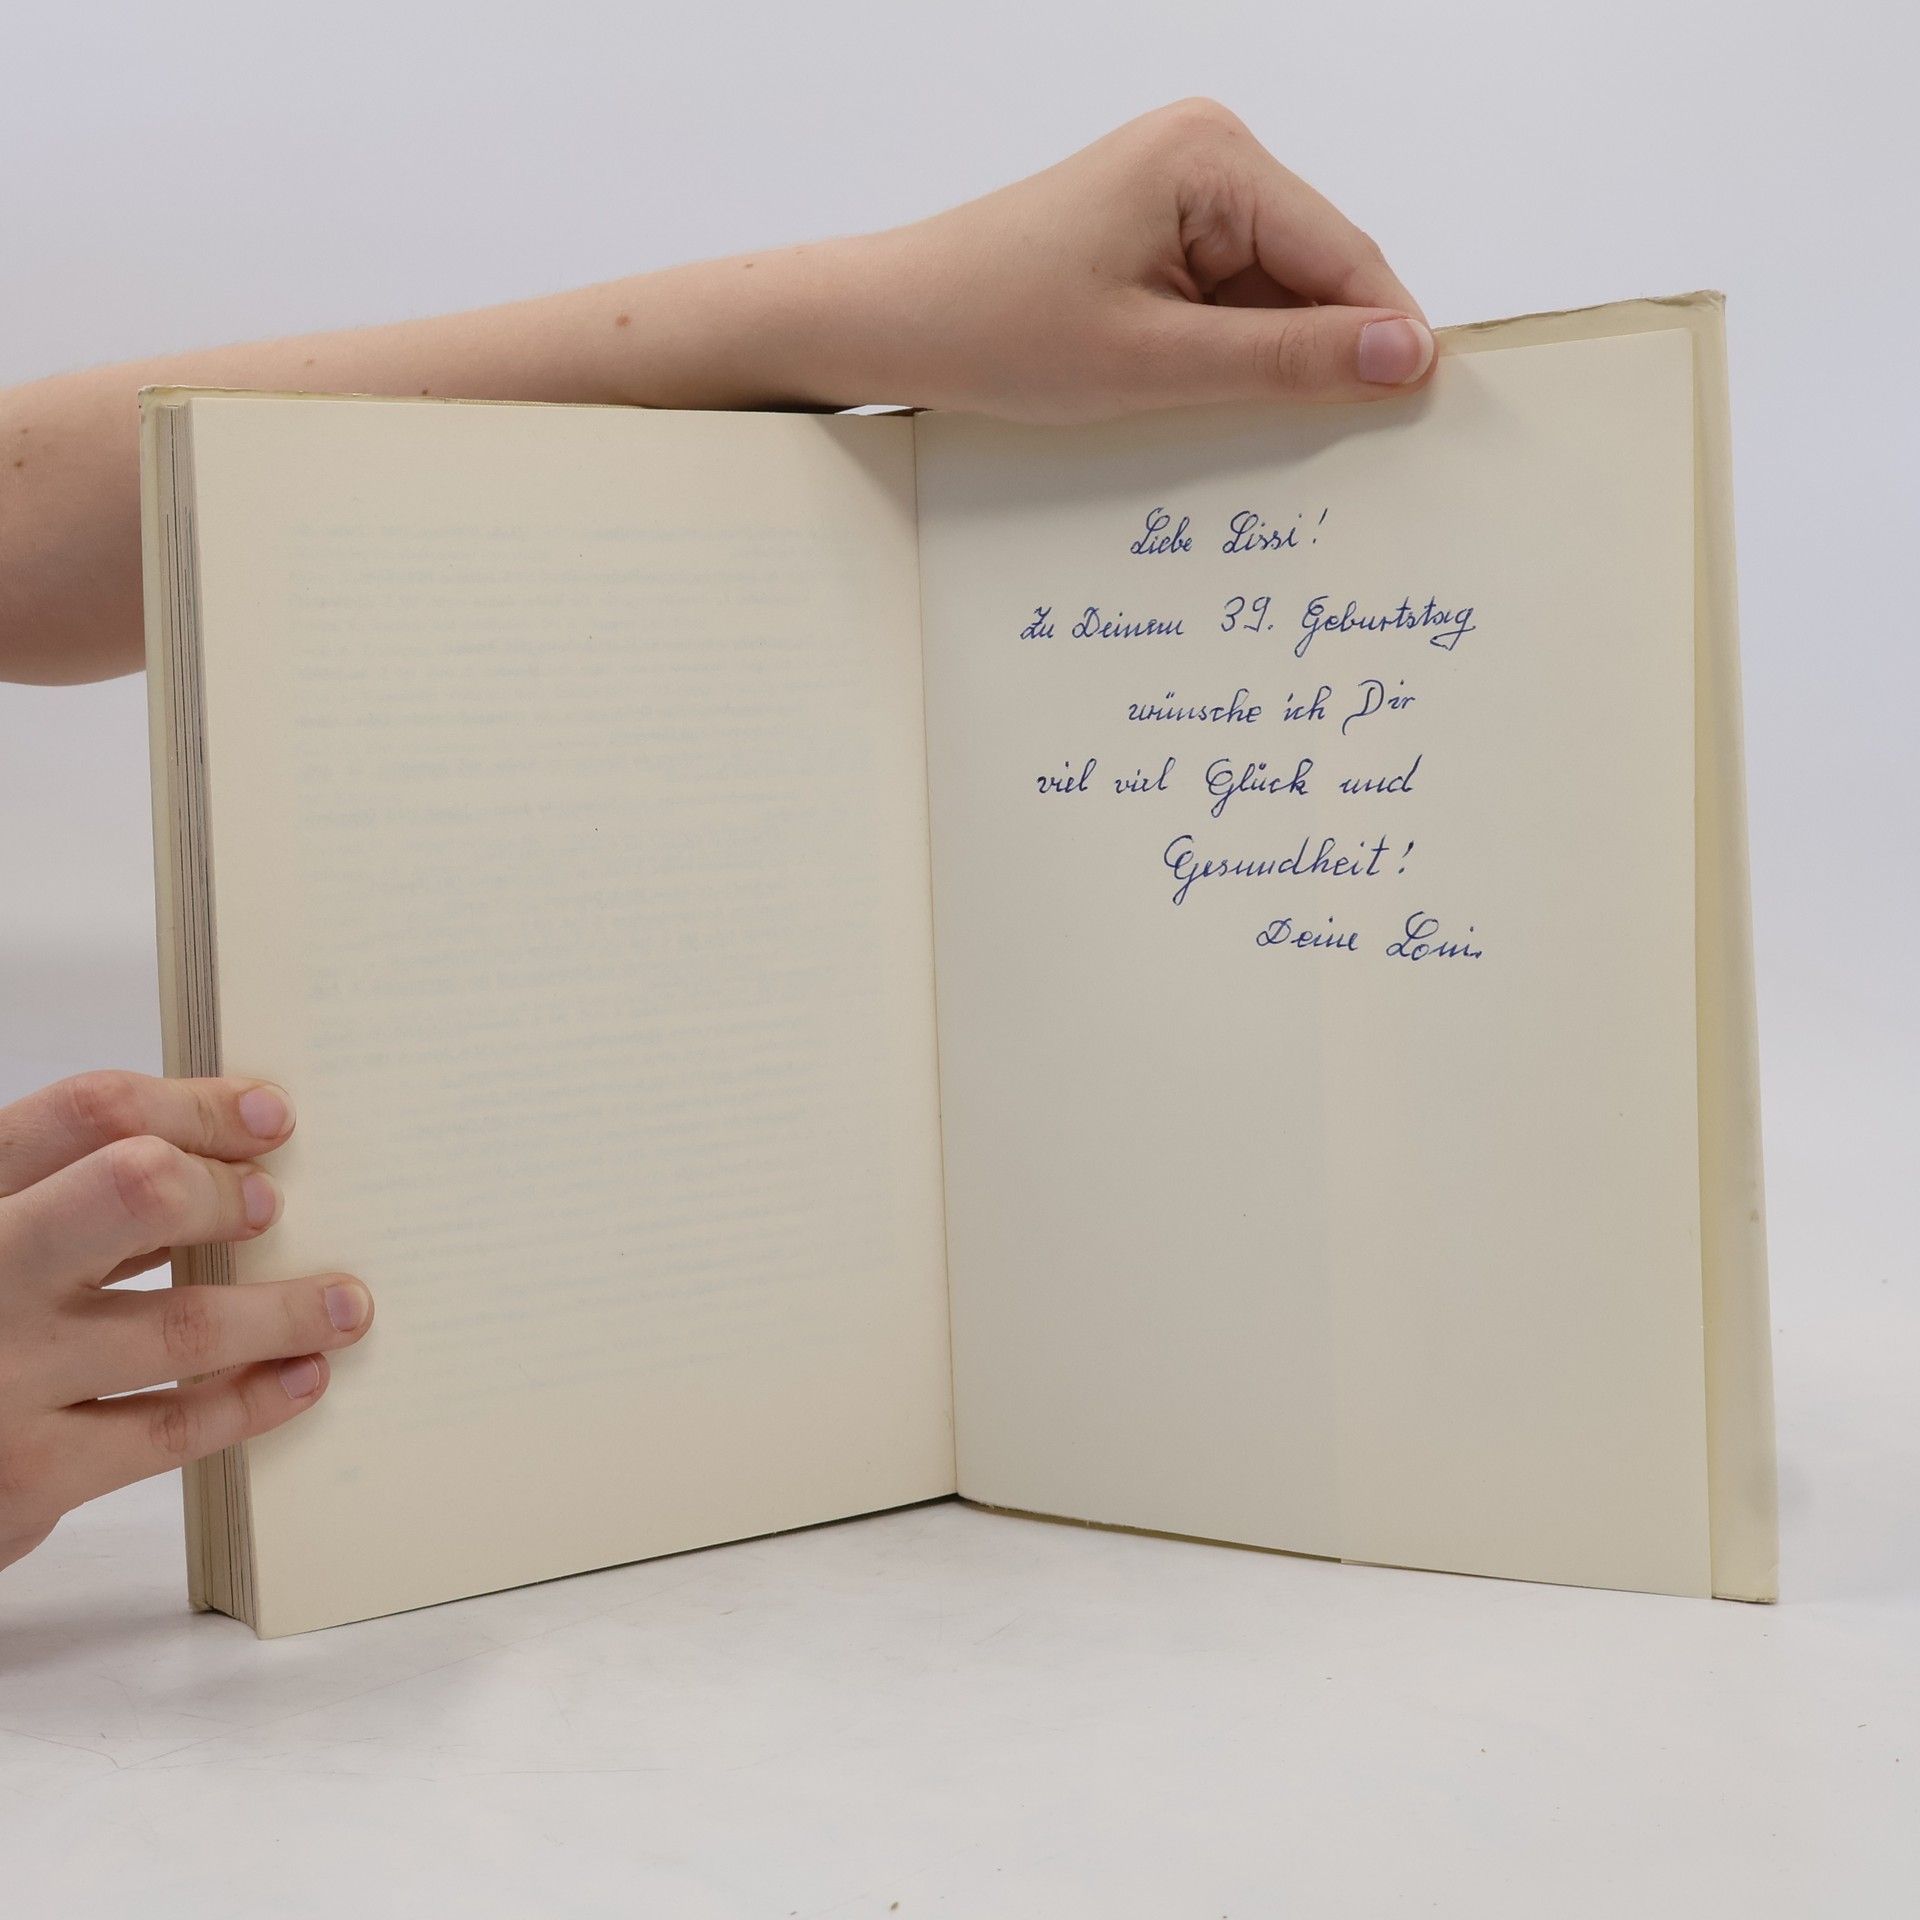 Liebe Lissi!
Zu Deinem 39. Geburtstag
wünsche ich Dir
viel viel Glück und
Gesundheit!
Deine Loni.